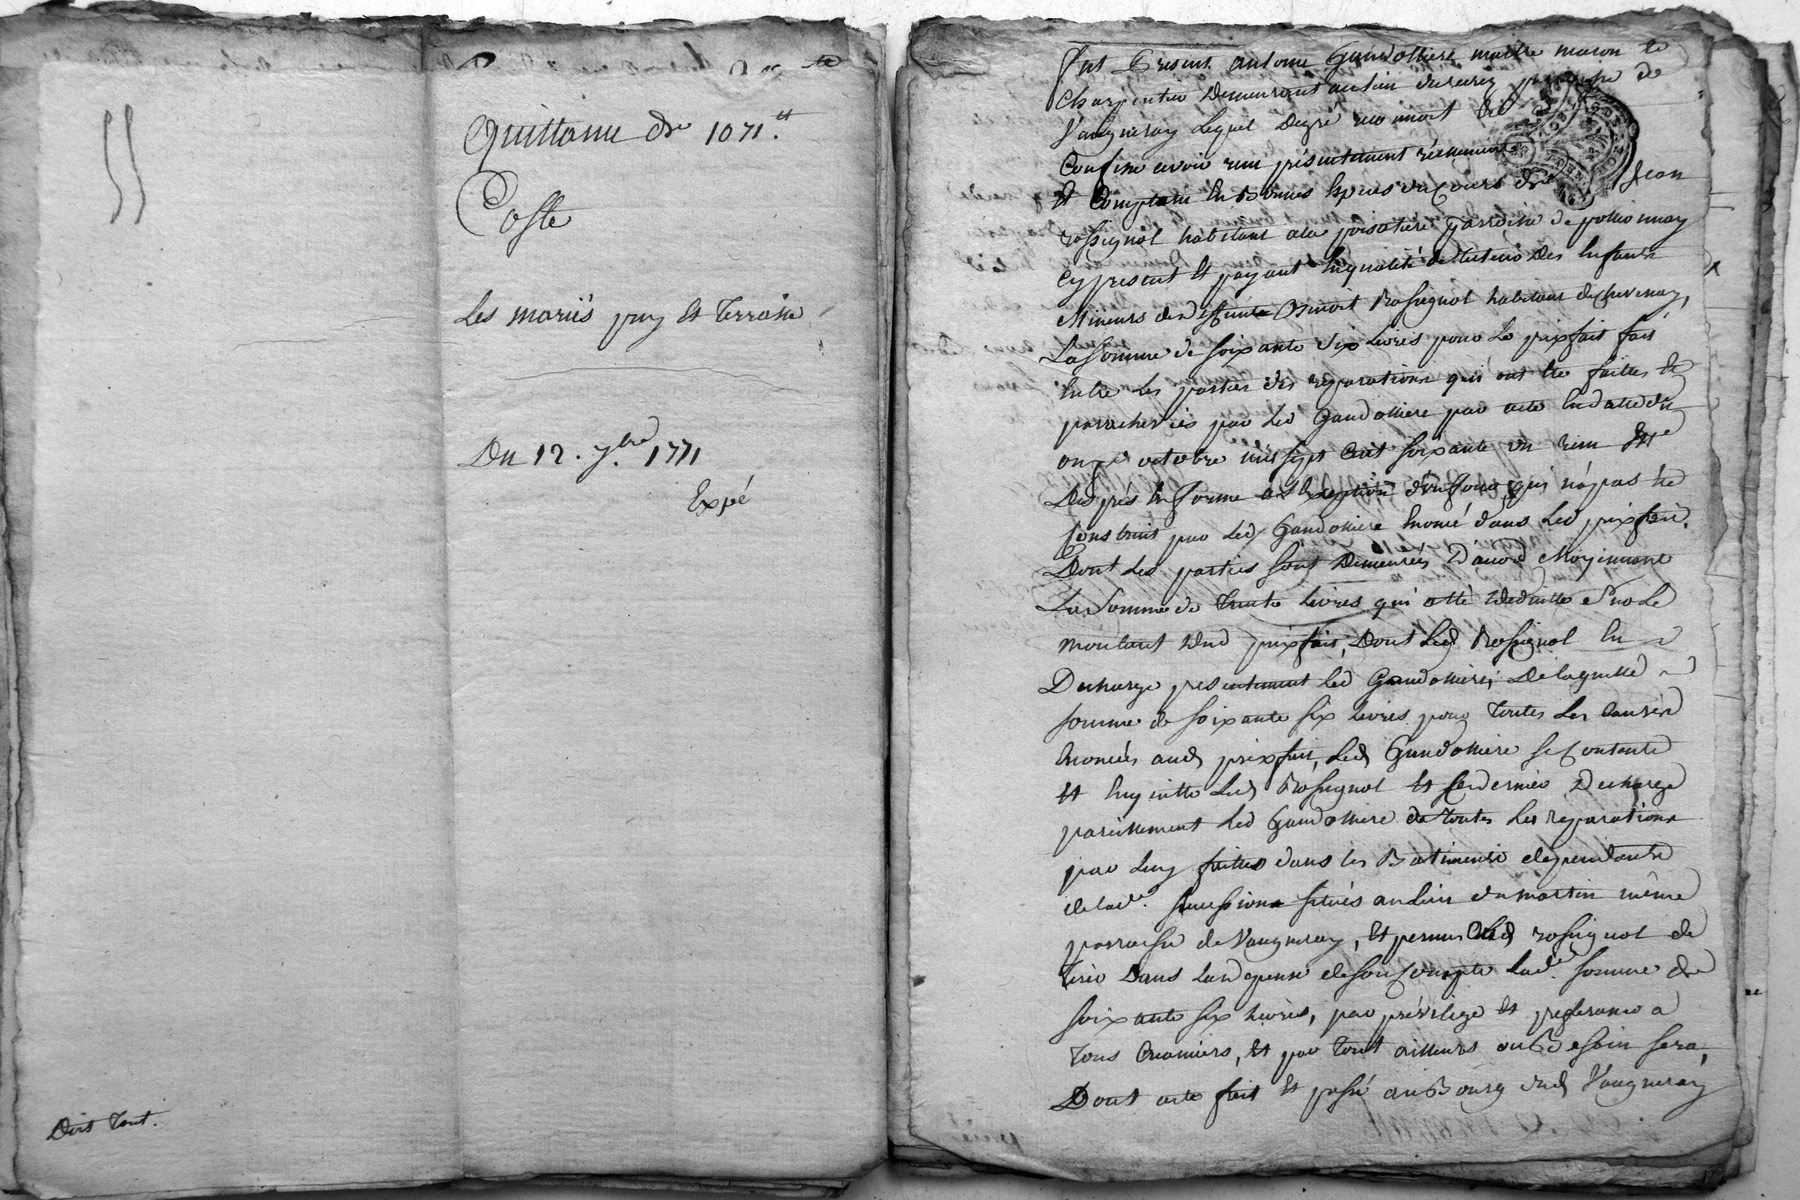 Quittance de 1071.tt
Coste
Les mariés puy et Terrasse
Du 12. 7bre. 1771
Expé
Doit tout.
Fut Présent Antoine Gaudolliere maitre mason et
Charpentier Demeurant au lieu du paroisse de
Vaugneray Lequel Degré reconnoit et
Confesse avoir reçu présentement réellement
Et Comptant En Bonnes Especes du Cours de Jean
rossignol habitant a la poisatiere parroisse de pollionnay
Cy present Et payant En qualité de tuteur Des Enfants
Mineurs de deffunt Benoit Rossignol habitant de chevenay,
La somme de soixante six Livres pour Le prixfait fait
Entre Les parties des reparations qui ont été faittes et
parachevées par Led Gaudolliere par acte En datte du
onze octobre mil sept Cent soixante un reçu
Des prés En forme a l'Exception d'un four qui n'a pas été
Construit par Led Gaudolliere Enoncé dans Led prixfait.
Dont Les parties sont Demeurées D'acord Moyennant
La Somme de trente Livres qui a été déduitte sur Le
montant dud prixfait, Dont Led Rossignol En
Decharge presentement Led Gaudolliere, De laquelle
somme de soixante six Livres pour toutes Les Causes
Enoncées aud prixfait, Led Gaudolliere se Contente
Et En quitte Led Rossignol Et Ce dernier Decharge
pareillement Led Gaudolliere de toutes Les reparations
par Luy faittes dans les Batiments dependants
de lade. succession situés au lieu du martin même
parroisse de Vaugneray, Et permis aud rossignol de
tirer Dans La depense de son Compte Lade. somme de
soixante six Livres, par privilege et preferance a
tous Creanciers, Et par tout ailleurs ou Besoin sera,
Dont acte fait Et passé au Bourg dud Vaugneray